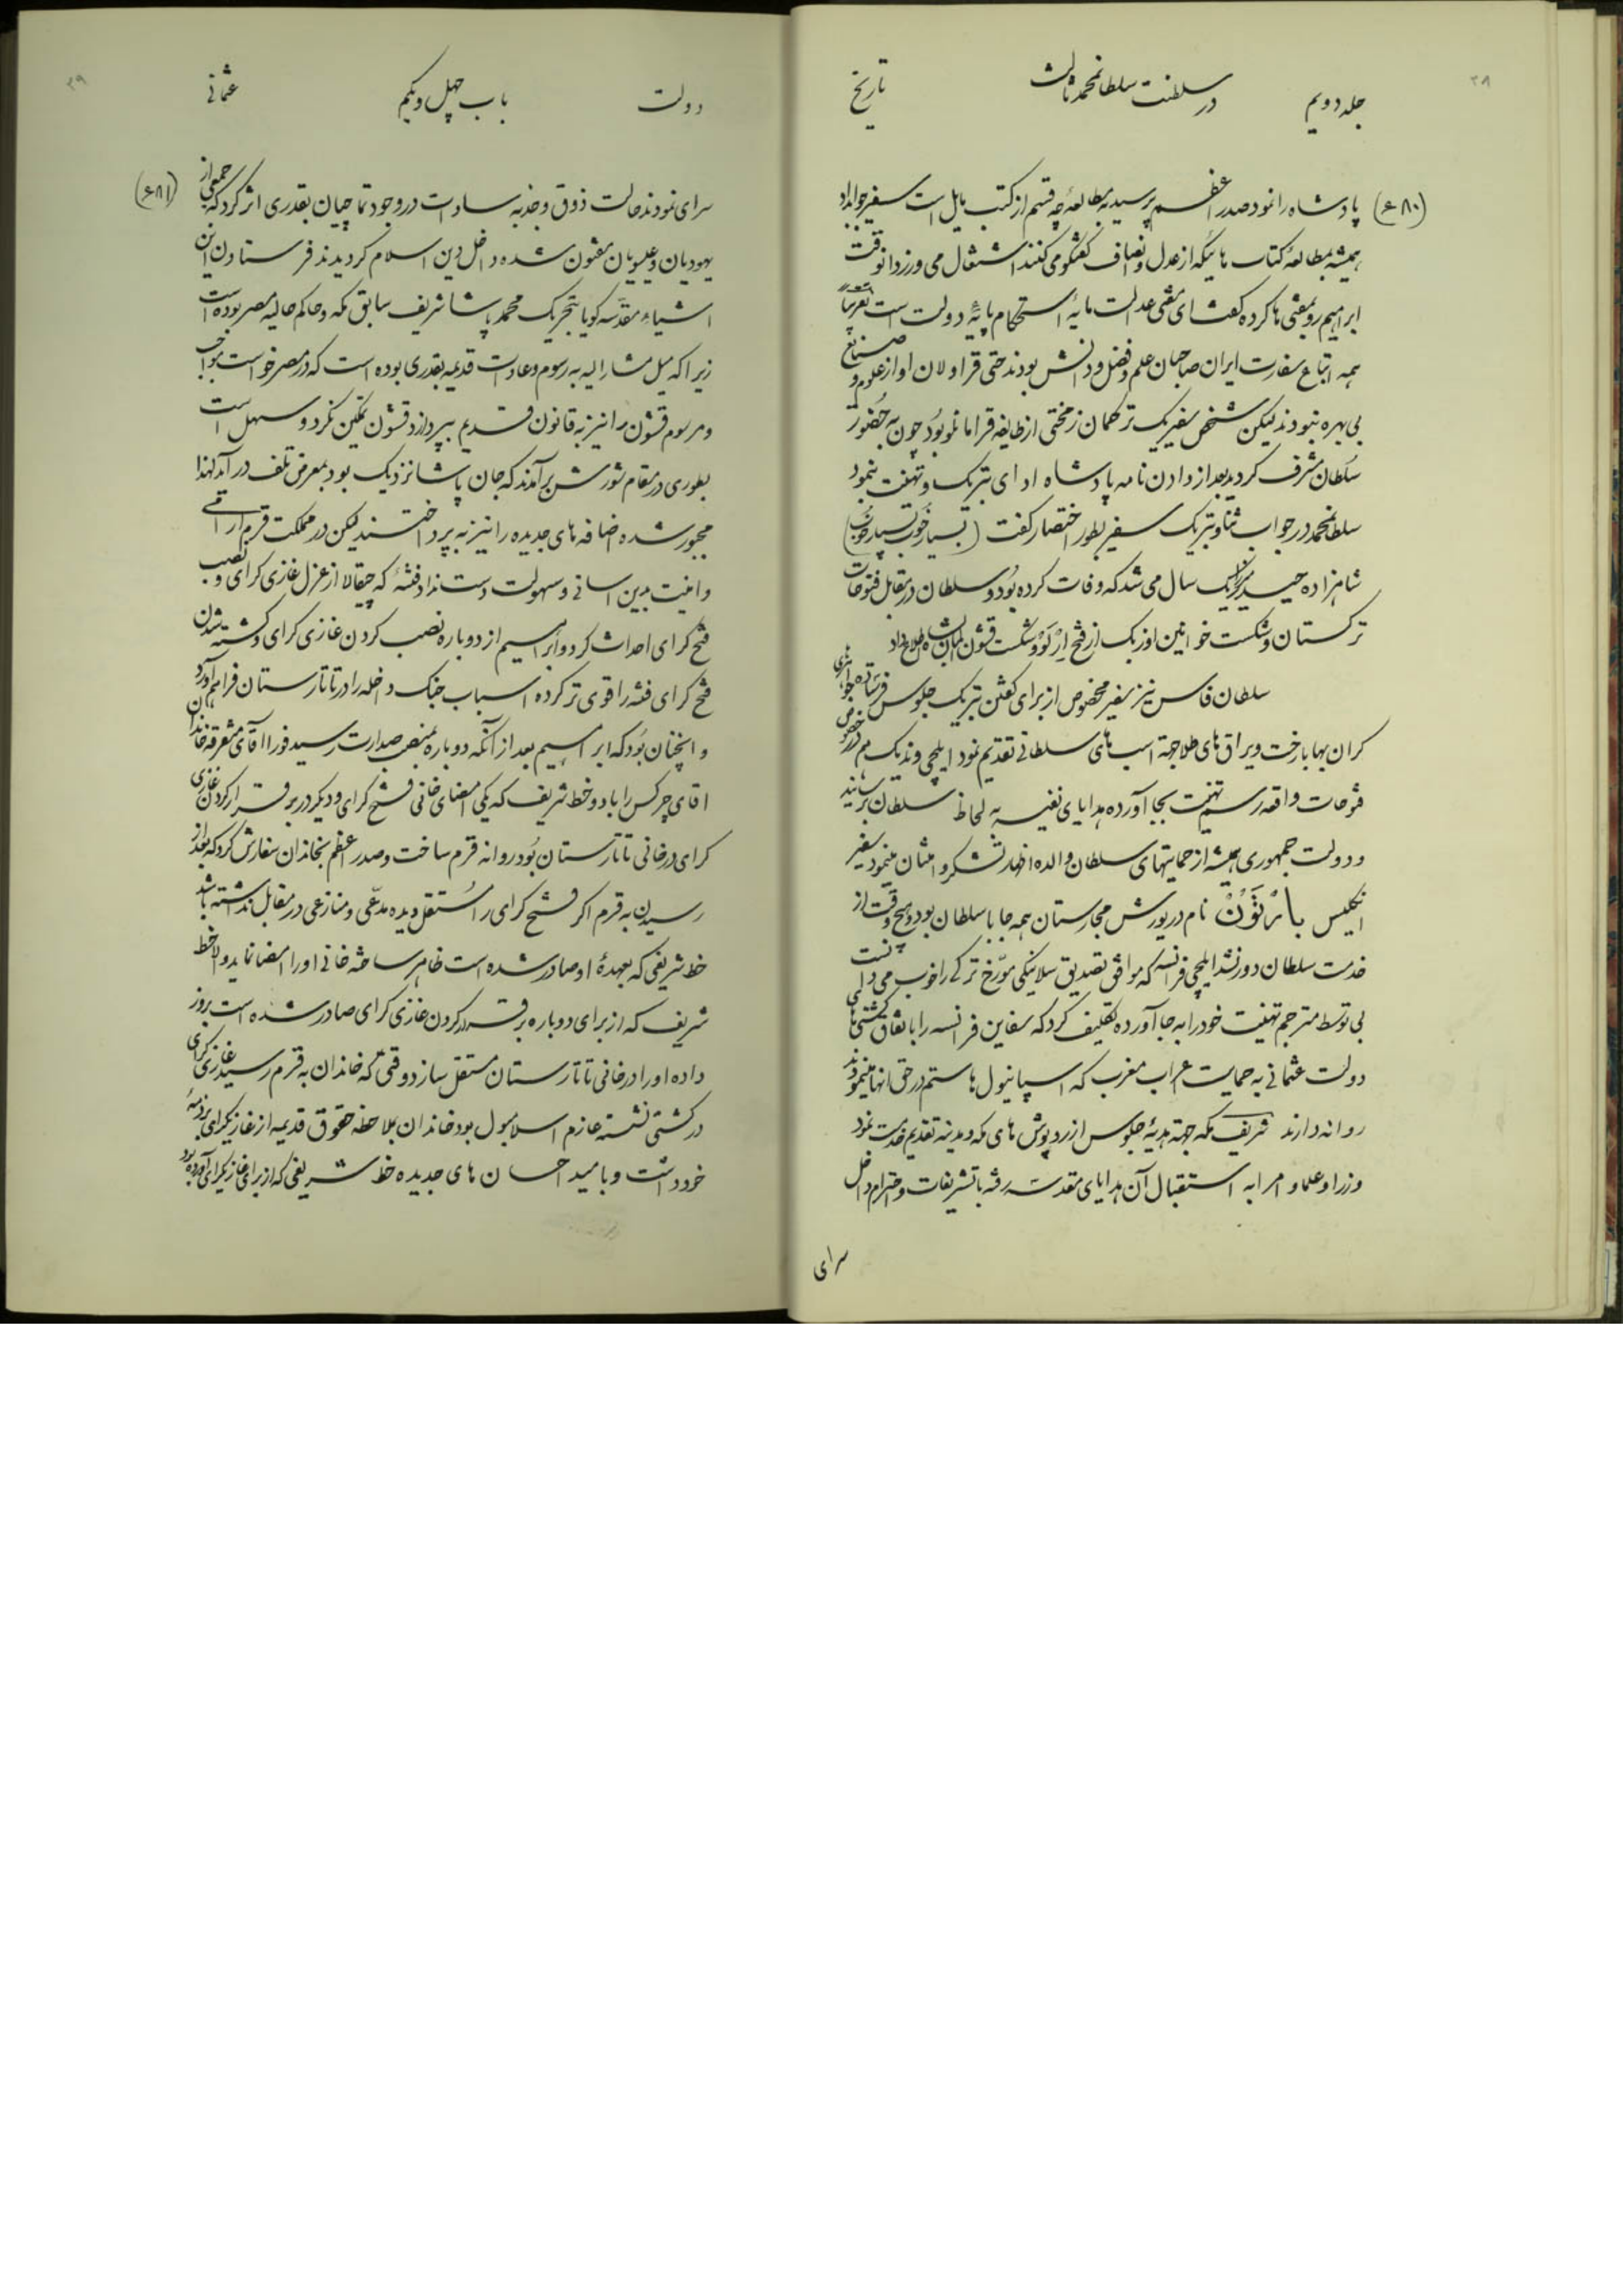 ۳۸
جلد دویم در سلطنت سلطانمحمد ثالث تاریخ
(۴۸۰) پادشاه را نمود صدر اعظم پرسید به مطالعهٔ چه قسم از کتب مایل است سفیر جواب داد
همیشه بمطالعهٔ کتاب هائیکه از عدل و انصاف گفتگو می کنند اشتغال می ورزد انوقت
ابراهیم رو بمفتی ها کرده گفت ای مفتی عدالت مایهٔ استحکام پایهٔ دولت است تقریباً
همه اتباع سفارت ایران صاحبان علم و فضل و دانش بودند حتی قراولان او از علوم و صنایع
بی بهره نبودند لیکن شخص سفیر یک ترکمان زمختی از طایفه قرامانلو بود چون به حضور
سلطان مشرف کردید بعد از دادن نامه پادشاه ادای تبریک و تهنیت بنمود
سلطانمحمد در جواب ثنا و تبریک سفیر بطور اختصار گفت (بسیار خوب بسیار خوب)
شاهزاده حیدر میرزا یک سال می شد که وفات کرده بود و سلطان در مقابل فتوحات
ترکستان و شکست خوانین اوزبک از فتح ارلو و شکست قشون المان شاه را اطلاع داد
سلطان فاس نیز سفیر مخصوص از برای گفتن تبریک جلوس فرستاده جواهری
کران بها با رخت ویراق های طلا جهة اسب های سلطانی تقدیم نمود ایلچی وندیک هم در خصوص
فتوحات واقعه رسم تهنیت بجا آورده هدایای نفیسه به لحاظ سلطان برسانید
و دولت جمهوری همیشه از حمایتهای سلطان والده اظهار تشکر و امتنان مینمود سفیر
انگلیس بارتون نام در یورش مجارستان همه جا با سلطان بود و هیچ وقت از
خدمت سلطان دور نشد ایلچی فرانسه که موافق تصدیق سلانیکی مورخ ترکی را خوب می دانست
بی توسط مترجم تهنیت خود را به جا آورده تکلیف کرد که سفاین فرانسه را باتفاق کشتی های
دولت عثمانی به حمایت اعراب مغرب که اسپانیول ها ستم در حق انها مینمودند
روانه دارند شریف مکه جهة هدیهٔ جلوس از رد پوش های مکه و مدینه تقدیم خدمت نمود
وزرا و علما و امرا به استقبال آن هدایای مقدسه رفته با تشریفات و احترام داخل
سرای
۳۹
دولت باب چهل و یکم عثمانی
(۴۸۱) سرای نمودند حالت ذوق و جذبه سادات در وجود تماچیان بقدری اثر کرد که جمعی از
یهودیان و عیسویان مفتون شده داخل دین اسلام کردیدند فرستادن این
اشیاء مقدسه کویا بتحریک محمد پاشا شریف سابق مکه و حاکم حالیه مصر بوده است
زیرا که میل مشار الیه به رسوم و عادات قدیمه بقدری بوده است که در مصر خواست مواجب
و مرسوم قشون را نیز به قانون قدیم بپردازد قشون تمکین نکرد و سهل است
بطوری در مقام شورش بر آمدند که جان پاشا نزدیک بود بمعرض تلف در آمد لهذا
مجبور شده اضافه های جدیده را نیز به پرداختند لیکن در مملکت قرم ارامی
وامنیت بدین اسانی و سهولت دست نداد فتنهٔ که چیقالا از عزل غازی کرای و نصب
فتح کرای احداث کرد و ابراهیم از دوباره نصب کردن غازی کرای و کشته شدن
فتح کرای فتنه را قوی تر کرده اسباب جنک داخله را در تاتارستان فراهم آورد
و اینچنان بود که ابراهیم بعد از آنکه دوباره بمنصب صدارت رسید فورا آقای متفرقه خاندان
اقای چرکس را با دو خط شریف که یکی امضای خانی فتح کرای و دیگر در برقرار کردن غازی
کرای در خانی تاتارستان بود روانه قرم ساخت و صدر اعظم بخاندان سفارش کرد که بعد از
رسیدن به قرم اگر فتح کرای را مستقل دیده مدعی و منازعی در مقابل نداشته باشد
خط شریفی که بعهدهٔ او صادر شده است ظاهر ساخته خانی او را امضا نماید والا خط
شریف که از برای دوباره برقرار کردن غازی کرای صادر شده است بروز
داده او را در خانی تاتارستان مستقل سازد وقتی که خاندان به قرم رسید غازی کرای
در کشتی نشسته عازم اسلامبول بود خاندان بملاحظه حقوق قدیمه از غازیکرای بر ذمهٔ
خود داشت و بامید احسان های جدیده خط شریفی که از برای غازیکرای آورده بود